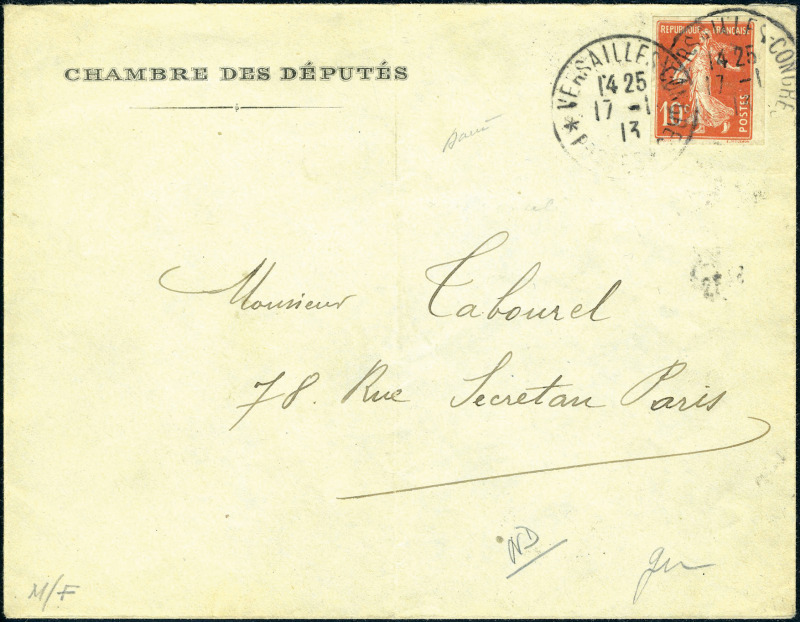 CHAMBRE DES DÉPUTÉS
VERSAILLES-CONGRÈS
14 25
17 -1
13
VERSAILLES-CONGRÈS
14 25
17 -1
REPUBLIQUE FRANÇAISE
10c
POSTES
Monsieur Tabourel
78. Rue Secretan Paris
ND
M/F